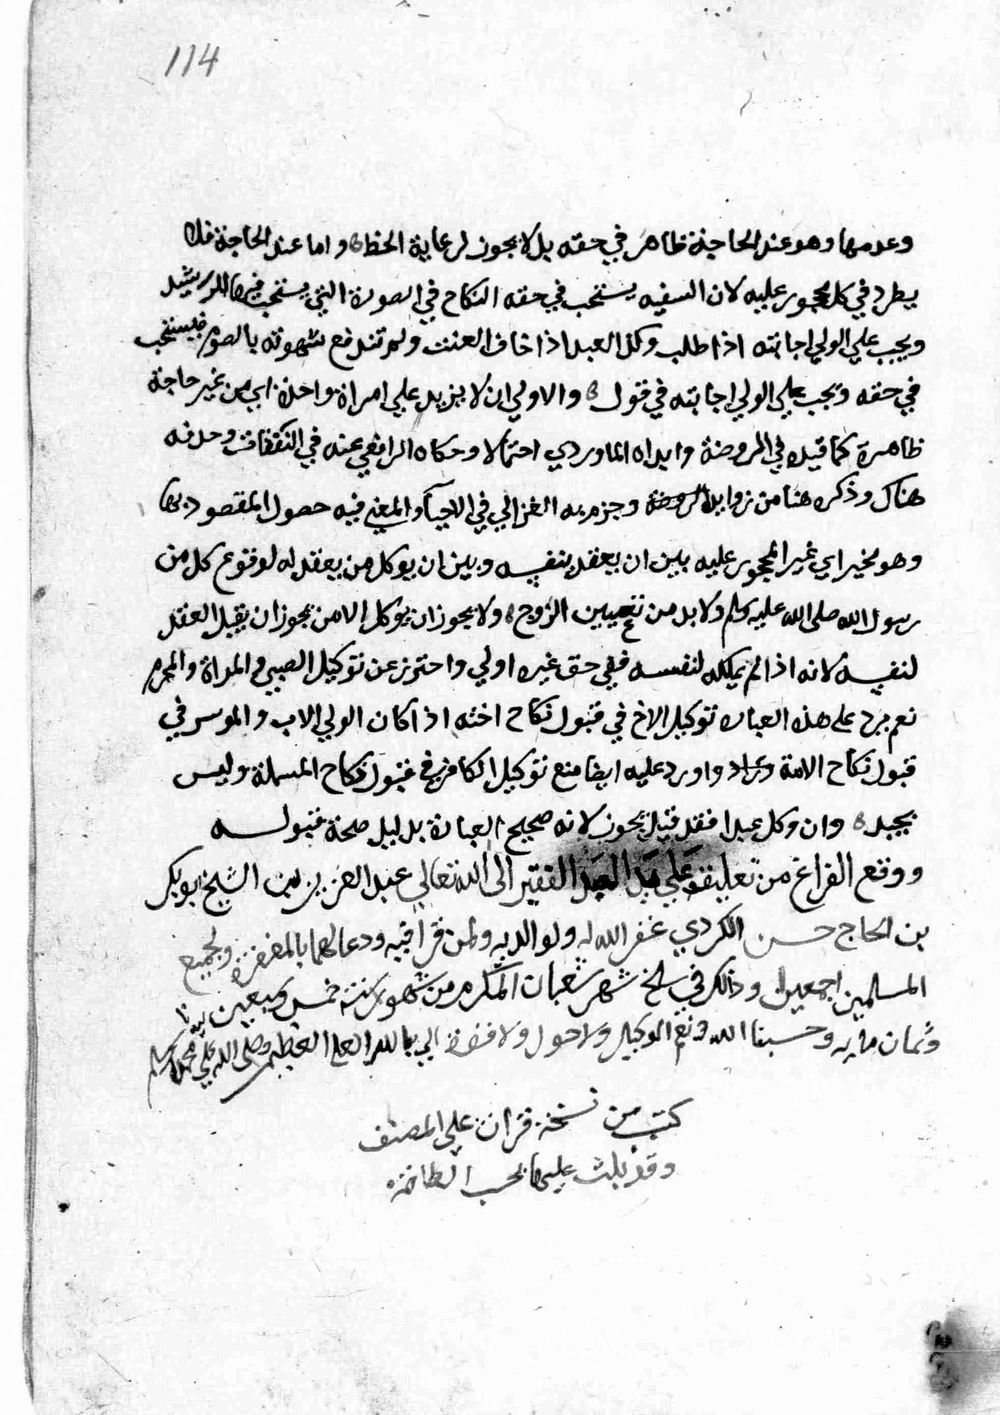 114
وعدمها وهو عند الحاجة ظاهر في حقه بل لا يجوز لرعاية الحظ ه واما عند الحاجة فلا
يطرد في كل محجور عليه لان السفيه يستحب في حقه النكاح في الصورة التي يستحب فيها للرشيد
ويجب علي الولي اجابته اذا طلب وكذا العبد اذا خاف العنت ولم تندفع شهوته بالصوم فيستحب
في حقه ويجب علي الولي اجابته في قول ه والاولي ان لا يزيد علي امراة واحدة اي من غير حاجة
ظاهرة كما قيده في الروضة وابداه الماوردي احتمالا وحكاه الرافعي عنه في النفقات وحذفه
هناك وذكره هنا من زوايد الروضة وجزم به الغزالي في الاحياء والمعني فيه حصول المقصود بها
وهو مخير اي غير المحجور عليه بين ان يعقد بنفسه وبين ان يوكل من يعقد له لوقوع كل من
رسول الله صلي الله عليه وسلم ولا بد من تعيين الزوج ه ولا يجوز ان يوكل الا من يجوز ان يقبل العقد
لنفسه لانه اذا لم يملكه لنفسه ففي حق غيره اولي واحترز عن توكيل الصبي والمراة والمحرم
نعم يرد علي هذه العبارة توكيل الاخ في قبول نكاح اخته اذا كان الولي الاب والموسر في
قبول نكاح الامة واورد عليه ايضا منع توكيل الكافر في قبول نكاح المسلمة وليس
بجيد ه وان وكل عبدا فقد قيل يجوز لانه صحيح العبارة بدليل صحة قبوله
ووقع الفراغ من تعليقه علي يد العبد الفقير الى الله تعالي عبد العزيز بن الشيخ ابو بكر
بن الحاج حسن الكردي غفر الله له ولوالديه ولمن قرا فيه ودعا لهما بالمغفرة ولجميع
المسلمين اجمعين وذالك في سلخ شهر شعبان المكرم من شهور سنة خمس وسبعين
وثمان مايه وحسبنا الله ونعم الوكيل ولا حول ولا قوة الا بالله العلي العظيم وصلى الله علي محمد وسلم
كتب من نسخة قرات علي المصنف
وقد بلت عليها بحسب الطاقة